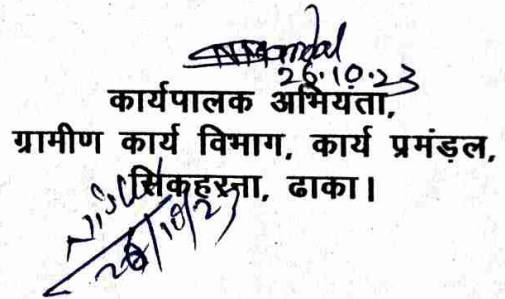 SNMandal
26.10.23
कार्यपालक अभियंता,
ग्रामीण कार्य विभाग, कार्य प्रमंडल,
सिकहरना, ढाका।
26/10/23